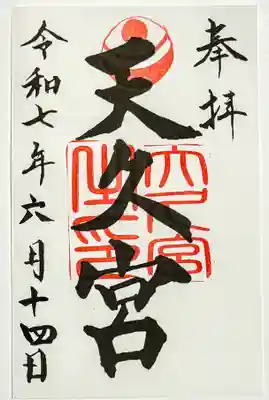 奉拝
天久宮
令和七年六月十四日